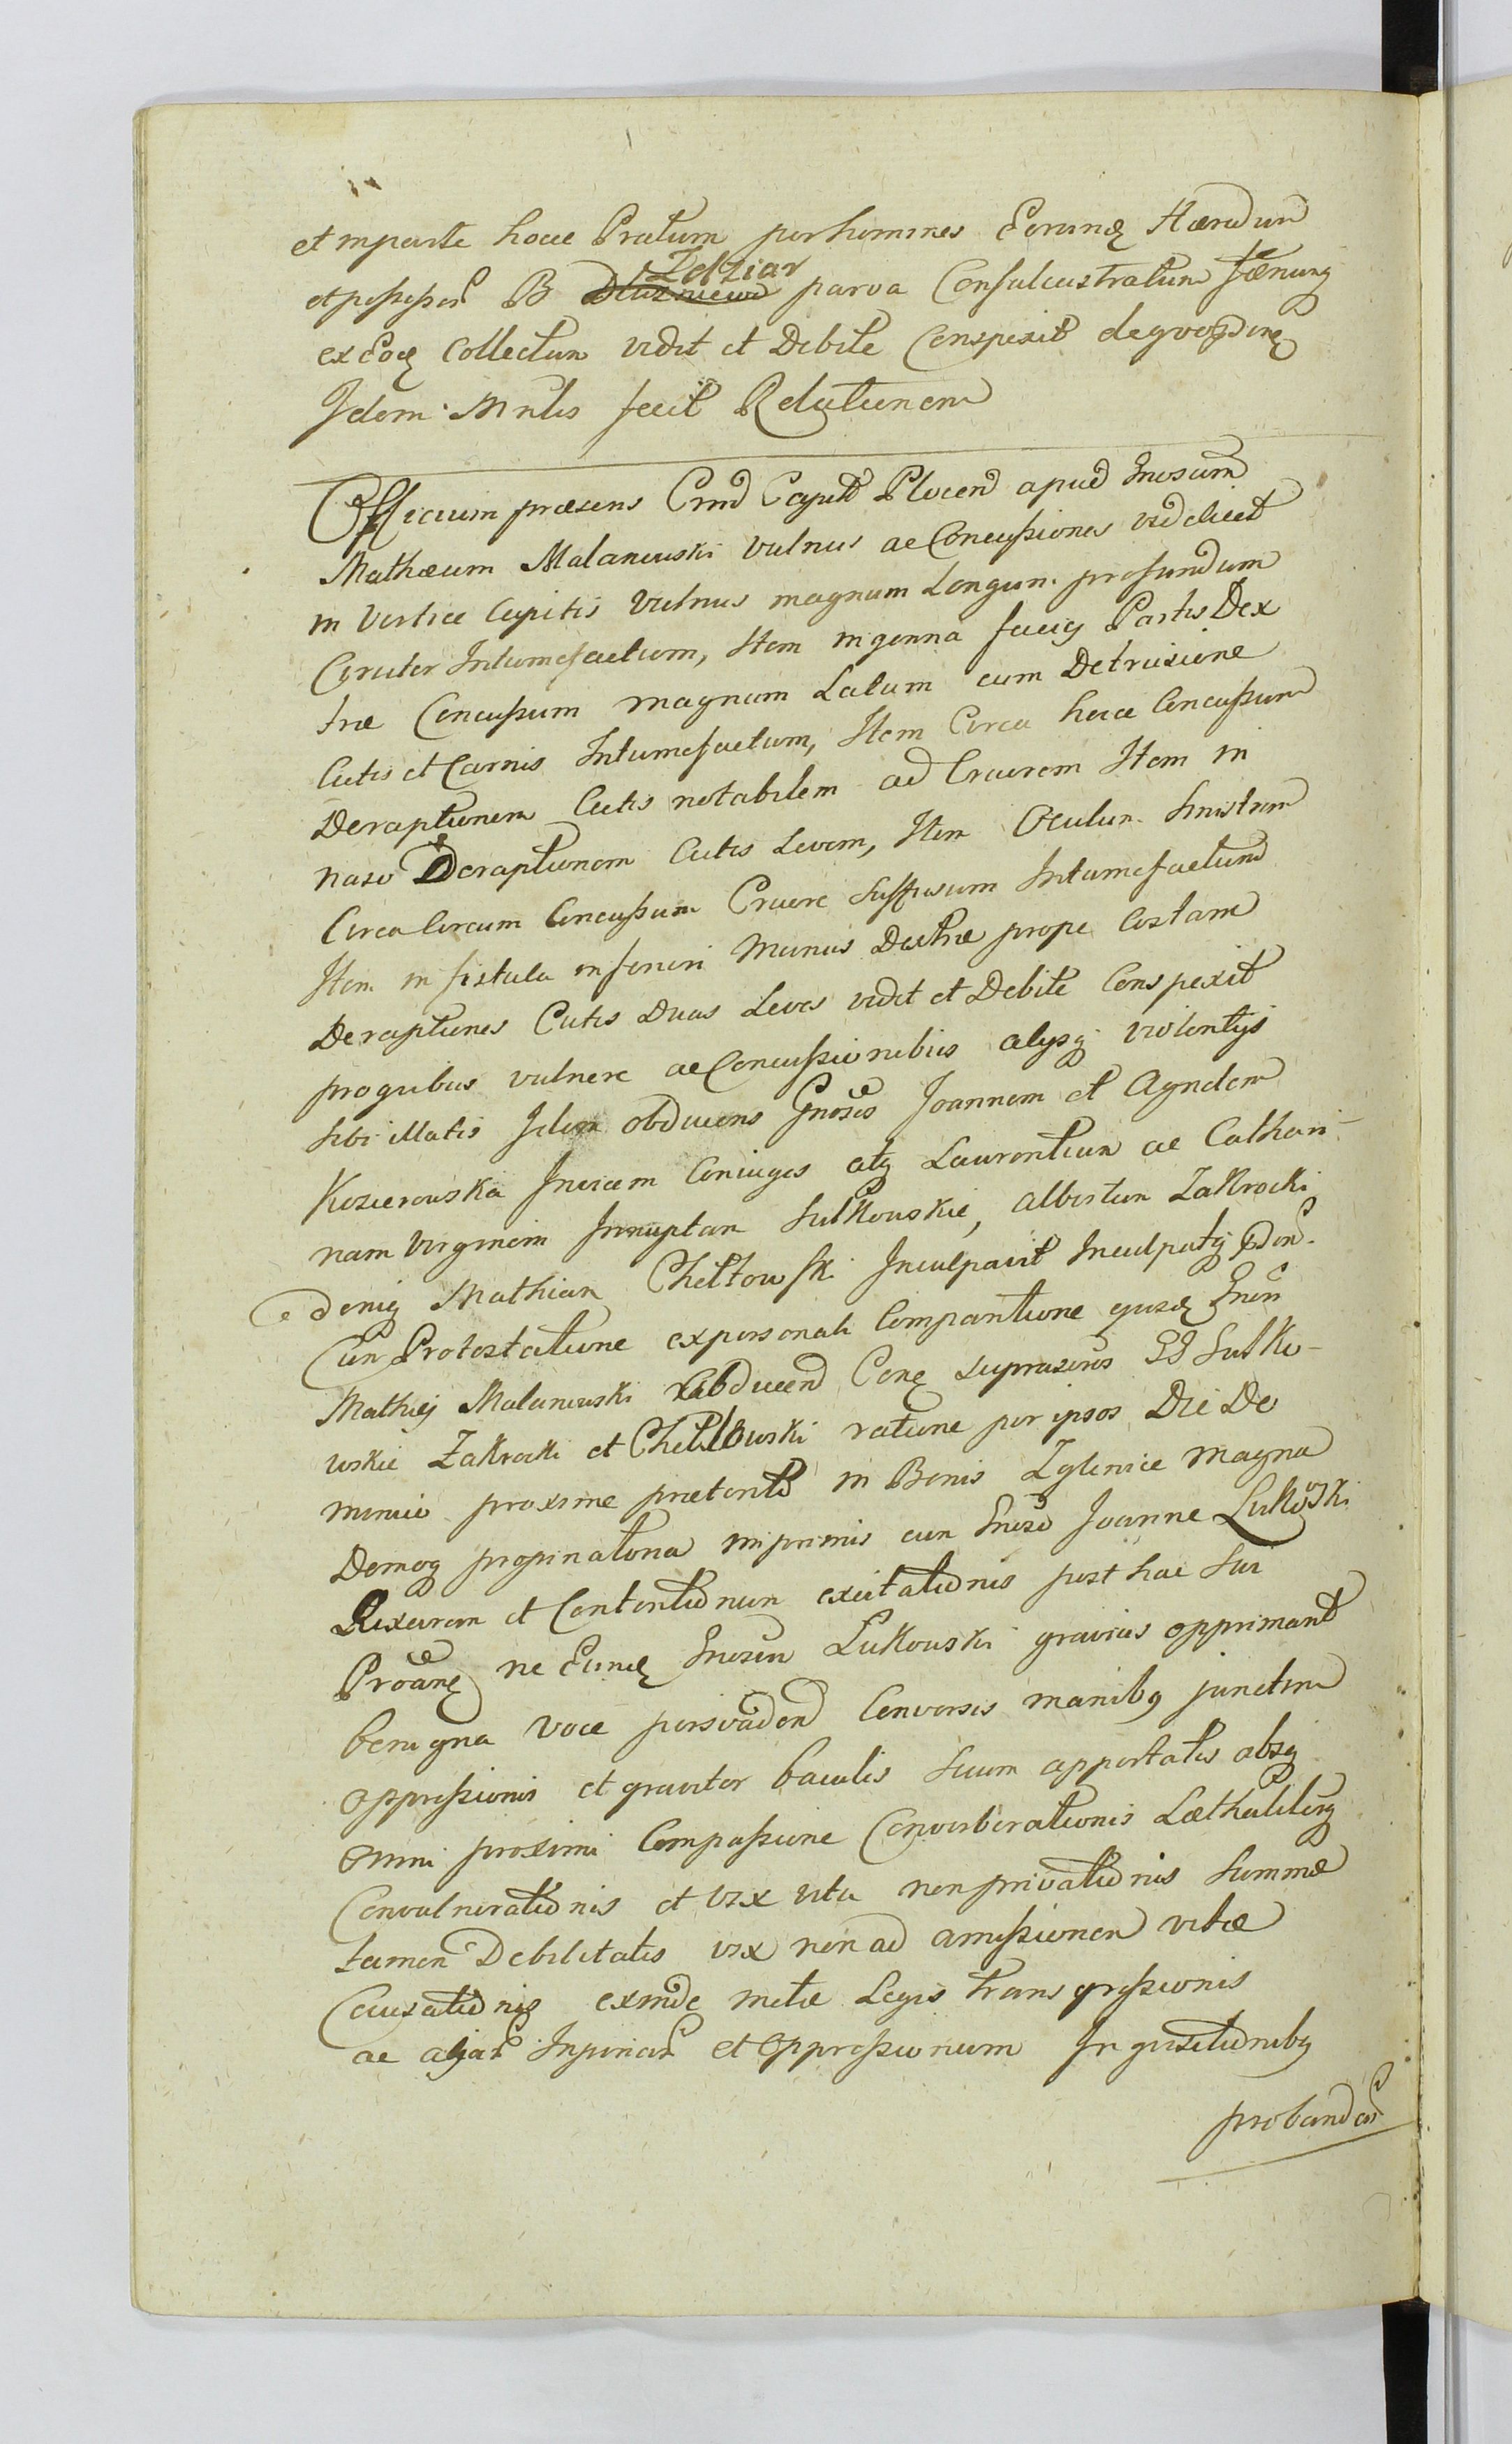 et in parte hocce Pratum per homines Eorund Hæredum
et possessor B Zdziar Dłużniewo parva Consulcustratum fænumq
ex Eoq Collectum vidit et Debite Conspexit de quo Eding
Idem Mnlis fecit Relationem
Officium præsens Crnd Captt Plocen apud Gnosum
Mathæum Malanowski vulnus ac Concussiones videlicet
in Vertice Capitis Vulnus magnum Longum profundum
Cruter Intumefactum, Item in genna faciey Partis Dex
træ Concussum magnum Latum cum Detrusione
Cutis et Carnis Intumefactum, Item Circa hocce Concussum
Deraptionem Cutis notabilem ad Cruorem Item in
naso Deraptionem Cutis Levem, Item Oculum Sinistrum
Circa Circum Concussum Cruore Suffusum Intumefactum
Item in fistula inferiori Manus Dextræ prope Costam
Deraptiones Cutis Duas Leves vidit et Debite Conspexit
pro quibus vulnere ac Concussionibus alysq violentys
sibi illatis Idem obducens Gnosos Joannem et Agnetem
Kozierowskie Invicem Coniuges atq Laurentium ac Cathari-
nam Virginem Innuptam Sulkowskie, Albertum Zakrocki
deniq Mathiam Cheltowski Inculpavit Inculpatq Eden
Cum Protestatione ex personali Comparitione ejusd Gnen
Mathiej Malanowski obducend Cong suprascros GG Sulko-
wskie Zakrocki et Cheltowski ratione per ipsos Die Do
minico proxime præterito in Bonis Zglenice Magna
Domoq propinatoria imprimis cum Gnoso Joanne Lukowski
Rixarum et Contentionum excitationis post hac sui
Proang ne Eund Gnosum Lukowski gravius opprimant
benigna voce persvadend Conversis manibq junctim
oppressionis et graviter baculis secum apportatis absq
omni proximi Compassione Converberationis Læthaliterq
Convulnerationis et vix vita non privationis Summæ
tamen Debilitatis vix non ad amissionem vitæ
Causationis exinde metæ Legis transgressionis
ac aliar Injuriar et Oppressionum Inquisitionibq
probandar